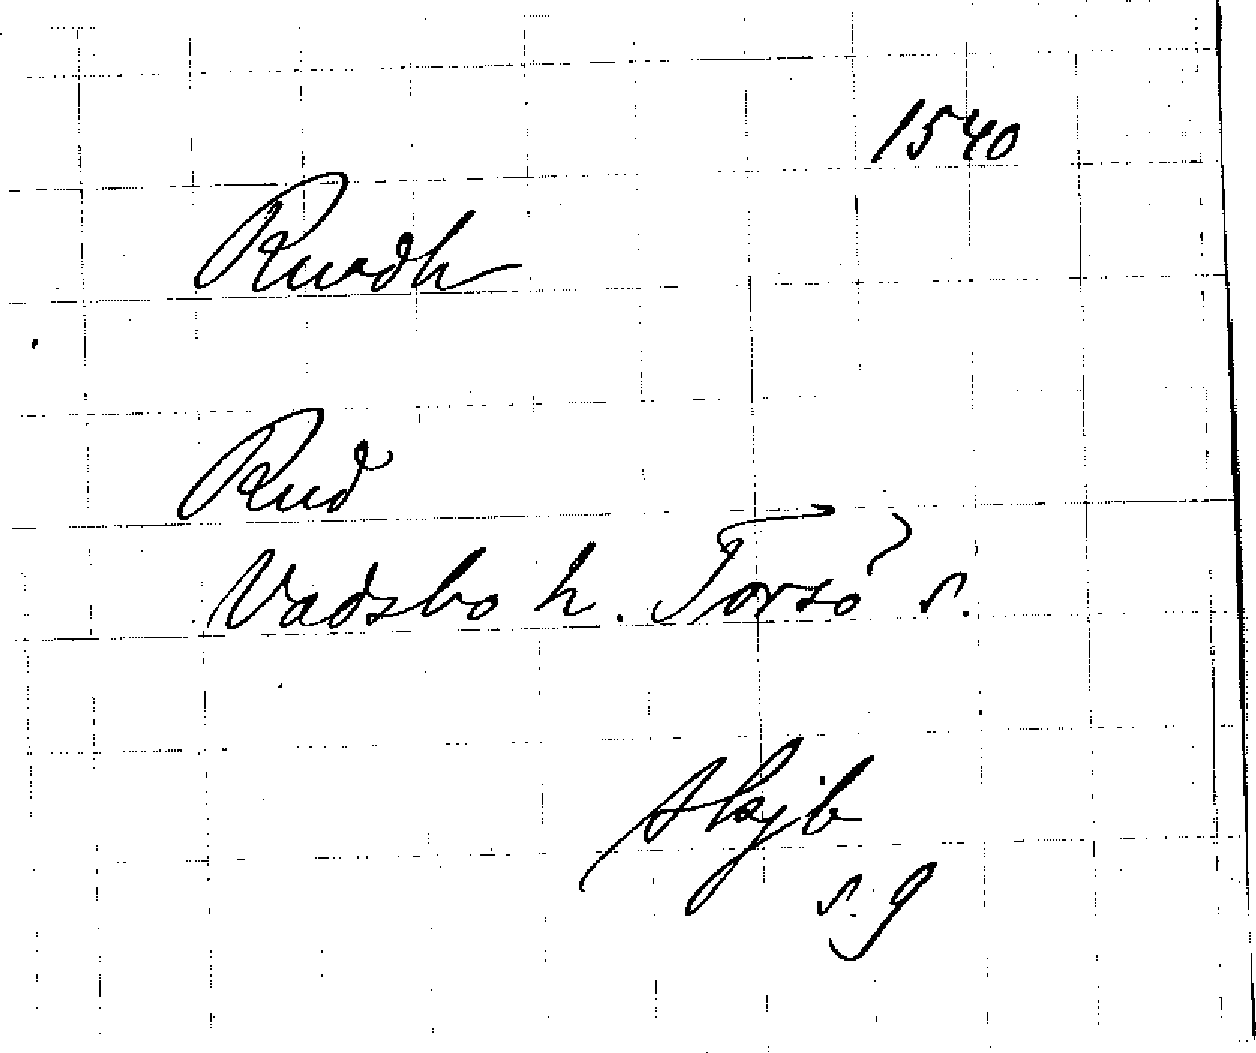 1540
Ruudh
Rud
Vadsbo h. Torsö s.
skjb
s. 9